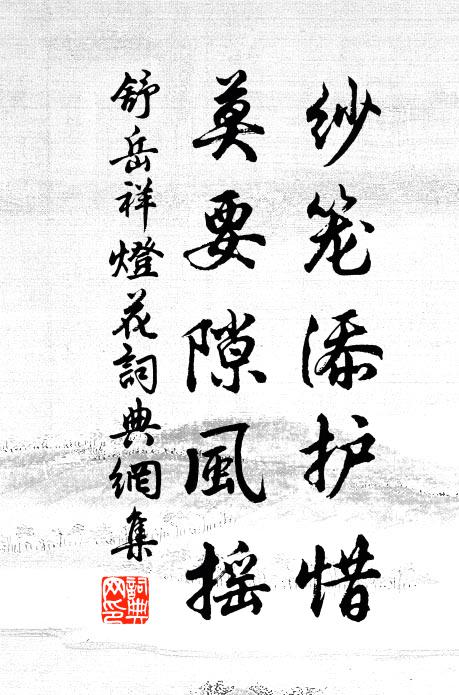 纱笼添护惜
莫要隙風摇
舒岳祥燈花詞典網集
詞典网印